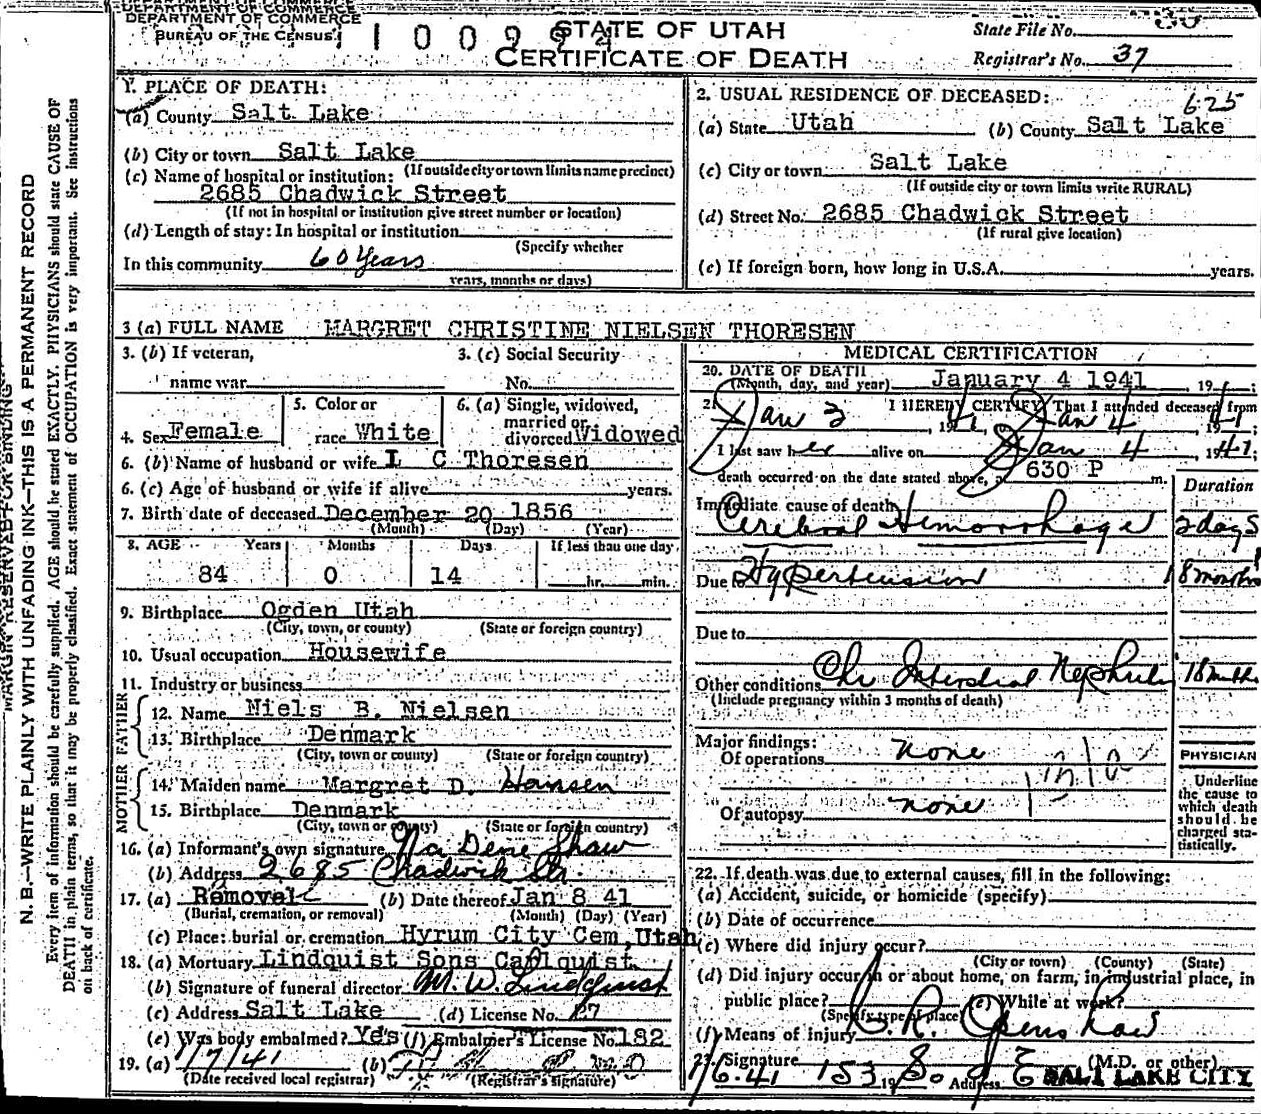 DEPARTMENT OF COMMERCE
DEPARTMENT OF COMMERCE
BUREAU OF THE CENSUS
STATE OF UTAH
CERTIFICATE OF DEATH
State File No.
Registrar's No. 37
1. PLACE OF DEATH:
(a) County Salt Lake
(b) City or town Salt Lake
(If outside city or town limits name precinct)
(c) Name of hospital or institution:
2685 Chadwick Street
(If not in hospital or institution give street number or location)
(d) Length of stay: In hospital or institution
(Specify whether
In this community 60 Years
years, months or days)
2. USUAL RESIDENCE OF DECEASED: 625
(a) State Utah (b) County Salt Lake
(c) City or town Salt Lake
(If outside city or town limits write RURAL)
(d) Street No. 2685 Chadwick Street
(If rural give location)
(e) If foreign born, how long in U.S.A. years.
3 (a) FULL NAME MARGRET CHRISTINE NIELSEN THORESEN
3. (b) If veteran,
name war
3. (c) Social Security
No.
4. Sex Female
5. Color or
race White
6. (a) Single, widowed,
married or
divorced Widowed
6. (b) Name of husband or wife L C Thoresen
6. (c) Age of husband or wife if alive years.
7. Birth date of deceased December 20 1856
(Month) (Day) (Year)
8. AGE Years Months Days If less than one day
84 0 14 hr. min.
9. Birthplace Ogden Utah
(City, town, or county) (State or foreign country)
10. Usual occupation Housewife
11. Industry or business
FATHER
12. Name Niels B. Nielsen
13. Birthplace Denmark
(City, town or county) (State or foreign country)
MOTHER
14. Maiden name Margret D. Hansen
15. Birthplace Denmark
(City, town or county) (State or foreign country)
16. (a) Informant's own signature Na Dene Shaw
(b) Address 2685 Chadwick Str.
17. (a) Removal (b) Date thereof Jan 8 41
(Burial, cremation, or removal) (Month) (Day) (Year)
(c) Place: burial or cremation Hyrum City Cem, Utah
18. (a) Mortuary Lindquist Sons Carlquist
(b) Signature of funeral director M. W. Lindquist
(c) Address Salt Lake (d) License No.
(e) Was body embalmed? Yes (f) Embalmer's License No. 182
19. (a) 1/7/41 (b)
(Date received local registrar) (Registrar's signature)
MEDICAL CERTIFICATION
20. DATE OF DEATH
(Month, day, and year) January 4 1941, 19 ;
21. I HEREBY CERTIFY That I attended deceased from
Jan 3, 1941, Jan 4, 1941;
I last saw her alive on Jan 4, 1941;
death occurred on the date stated above, a 630 P m.
Duration
Immediate cause of death
Cerebral Hemorrhage 2 days
Due to Hypertension 18 months
Due to
Other conditions Chr Interstial 18
(Include pregnancy within 3 months of death)
Major findings:
Of operations none
Of autopsy none
PHYSICIAN
Underline
the cause to
which death
should be
charged sta-
tistically.
22. If death was due to external causes, fill in the following:
(a) Accident, suicide, or homicide (specify)
(b) Date of occurrence
(c) Where did injury occur?
(City or town) (County) (State)
(d) Did injury occur in or about home, on farm, in industrial place, in
public place? (e) While at work?
(Specify type of place)
(f) Means of injury
23. Signature (M.D. or other)
1/6.41 Address SALT LAKE CITY
MARGIN RESERVED FOR BINDING
N. B.—WRITE PLAINLY WITH UNFADING INK—THIS IS A PERMANENT RECORD
Every item of information should be carefully supplied. AGE should be stated EXACTLY. PHYSICIANS should state CAUSE OF
DEATH in plain terms, so that it may be properly classified. Exact statement of OCCUPATION is very important. See instructions
on back of certificate.